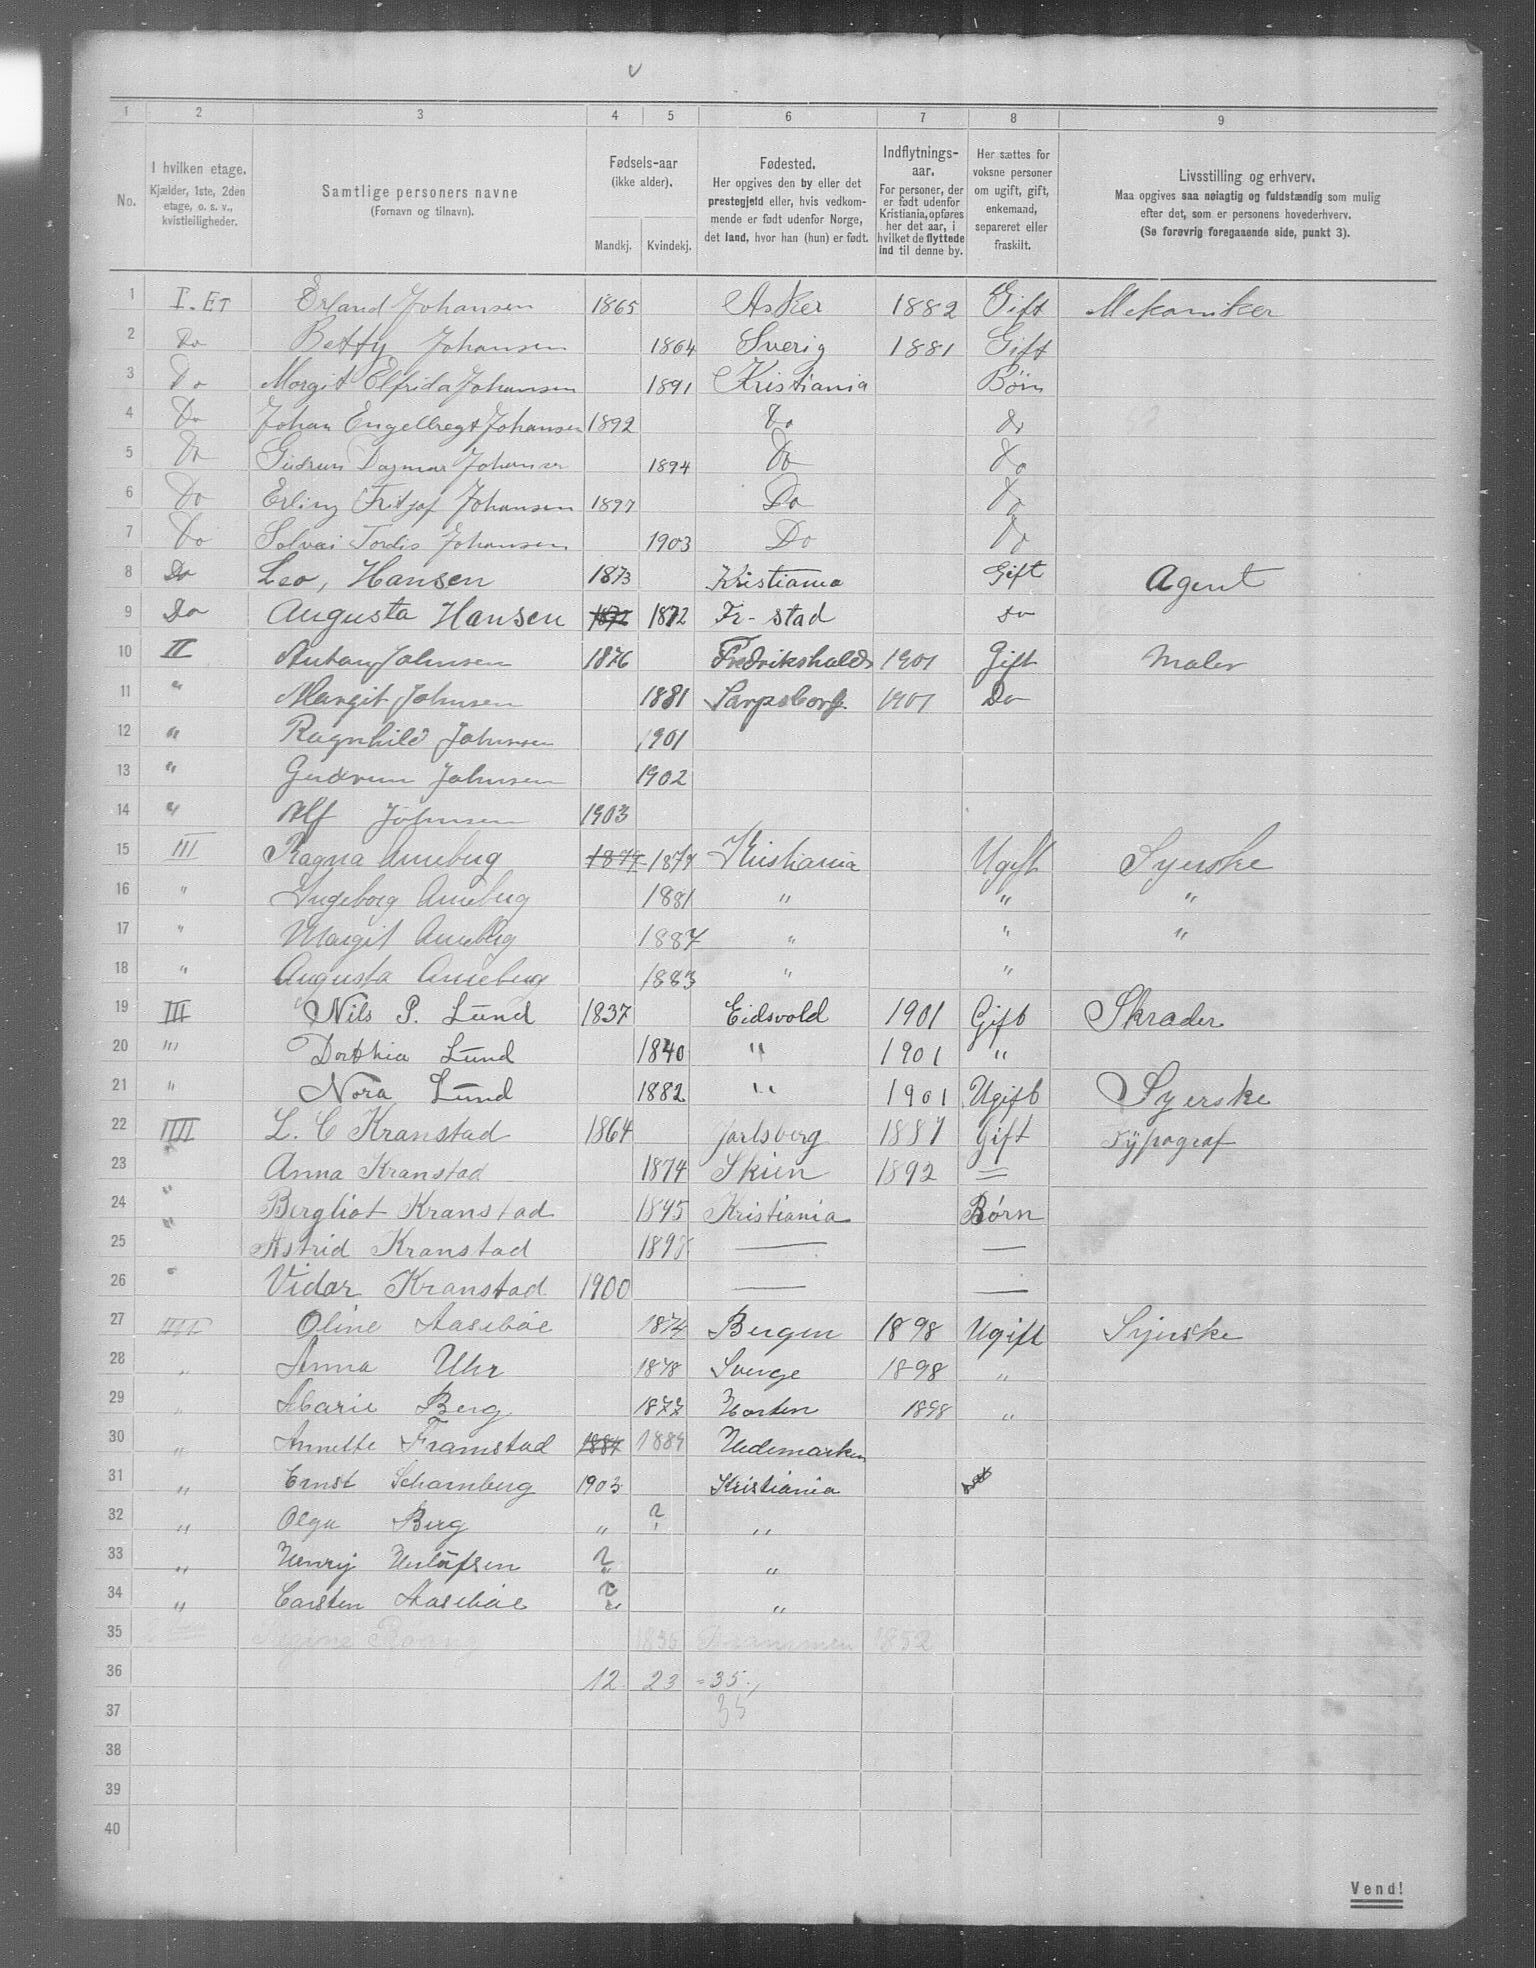 1 2 3 4 5 6 7 8 9
No.
I hvilken etage.
Kjælder, 1ste, 2den
etage, o. s. v.,
kvistleiligheder.
Samtlige personers navne
(Fornavn og tilnavn).
Fødsels-aar
(ikke alder).
Mandkj. Kvindekj.
Fødested.
Her opgives den by eller det
prestegjeld eller, hvis vedkom-
mende er født udenfor Norge,
det land, hvor han (hun) er født.
Indflytnings-
aar.
For personer, der
er født udenfor
Kristiania, opføres
her det aar, i
hvilket de flyttede
ind til denne by.
Her sættes for
voksne personer
om ugift, gift,
enkemand,
separeret eller
fraskilt.
Livsstilling og erhverv.
Maa opgives saa nøiagtig og fuldstændig som mulig
efter det, som er personens hovederhverv.
(Se forøvrig foregaaende side, punkt 3).
1 I. Et Erland Johansen 1865 Asker 1882 Gift Mekaniker
2 Do Betty Johansen 1864 Sverig 1881 Gift
3 Do Margit Elfrida Johansen 1891 Kristiania Børn
4 Do Johan Engelbregt Johansen 1892 Do do
5 Do Gudrun Dagmar Johansen 1894 Do Do
6 Do Erling Fritjof Johansen 1897 Do Do
7 Do Solvei Tordis Johansen 1903 Do Do
8 Do Leo, Hansen 1873 Kristiania Gift Agent
9 Do Augusta Hansen 1872 1872 Fr-stad do
10 II Anton Johnsen 1876 Fredrikshald 1901 Gift Maler
11 " Margit Johnsen 1881 Sarpsborg 1901 Do
12 " Ragnhild Johnsen 1901
13 " Gudrun Johnsen 1902
14 " Alf Johnsen 1903
15 III Ragna Anneberg 1879 1879 Kristiania Ugift Syerske
16 " Ingeborg Anneberg 1881 " " "
17 " Margit Anneberg 1887 " " "
18 " Augusta Anneberg 1883 " "
19 III Nils P. Lund 1837 Eidsvold 1901 Gift Skræder
20 "" Dorthia Lund 1840 " 1901 "
21 " Nora Lund 1882 " 1901 Ugift Syerske
22 IIII L. C Kranstad 1864 Jarlsberg 1887 Gift Typograf
23 " Anna Kranstad 1874 Skien 1892 =
24 " Bergliot Kranstad 1895 Kristiania Børn
25 " Astrid Kranstad 1898 — —
26 " Vidar Kranstad 1900 — —
27 IIII Oline Aasebøe 1874 Bergen 1898 Ugift Syerske
28 " Anna Uhr 1878 Sverge 1898 "
29 " Marie Berg 1877 Horten 1898 "
30 " Annette Framstad 1884 1884 Hedemarken
31 " Ernst Scharnberg 1903 Kristiania
32 " Olga Berg " ? "
33 " Henry Gustafsen ? " "
34 " Carsten Aasebøe ? " "
35 1836 Drammen 1852
36 12 23 = 35
37 35
38
39
40
Vend!